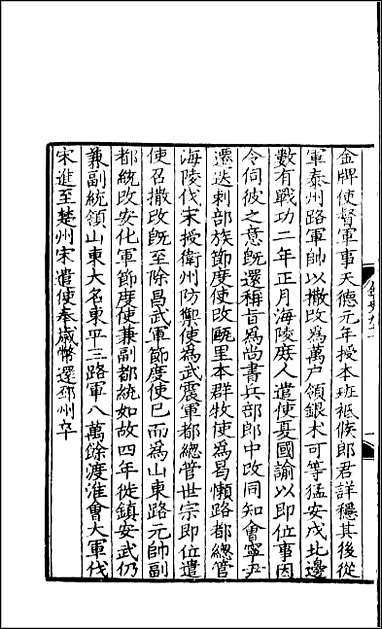 金牌使督軍事天德元年授本班祗候郎君詳穩其後從
軍泰州路軍帥以撒改爲萬户領銀术可等猛安戍北邊
數有戰功二年正月海陵庶人遣使夏國諭以即位事因
令伺彼之意既還稱旨爲尚書兵部郎中改同知會寧尹
遷迭剌部族節度使改甌里本群牧使爲曷懶路都總管
海陵伐宋授衛州防禦使爲武震軍都總管世宗即位遣
使召撒改既至除昌武軍節度使巳而爲山東路元帥副
都統改安化軍節度使兼副都統如故四年徙鎮安武仍
兼副統領山東大名東平三路軍八萬餘渡淮會大軍伐
宋進至楚州宋遣使奉歲幣還邳州卒